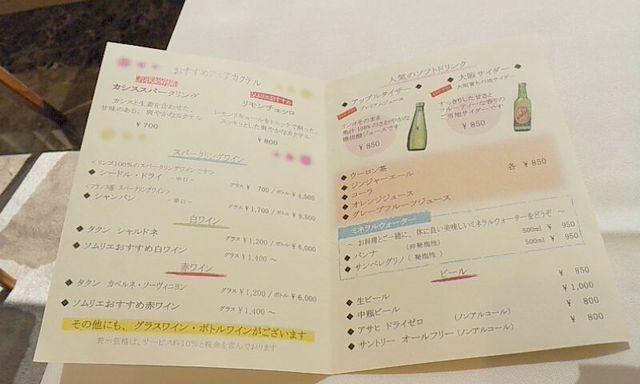 おすすめ カクテル
カシススパークリング
カシスと生姜を合わせた、
甘味のある、爽やかなカクテル
¥ 700
リモンチェッロ
レモンリキュールをトニックで割った、
スッキリとした爽やかなカクテル
¥ 800
スパークリングワイン
<リンゴ100%のスパークリングワインです>
◆ シードル・ドライ －辛口－ グラス ¥ 700 / ボトル ¥ 4,500
<フランス産 スパークリングワイン>
◆ シャンパン －辛口－ グラス ¥ 1,700 / ボトル ¥ 9,500
白ワイン
◆ タケン シャルドネ グラス ¥ 1,200 / ボトル ¥ 6,000
◆ ソムリエおすすめ白ワイン グラス ¥ 1,400 ～
赤ワイン
◆ タケン カベルネ・ソーヴィニヨン グラス ¥ 1,200 / ボトル ¥ 6,000
◆ ソムリエおすすめ赤ワイン グラス ¥ 1,400 ～
その他にも、グラスワイン・ボトルワインがございます
表示価格は、サービス料10％と税金を含んでおります
人気のソフトドリンク
◆ アップルタイザー
プレミアムジュース
リンゴそのまま
果汁100%のさわやかな
微炭酸ジュースです
¥ 850
◆ 大阪サイダー
大阪育ちの地サイダー
すっきりした甘さと
フルーティーな香りの
ご当地サイダーです
¥ 850
◆ ウーロン茶
◆ ジンジャーエール 各 ¥ 850
◆ コーラ
◆ オレンジジュース
◆ グレープフルーツジュース
ミネラルウォーター
～ お料理とご一緒に、体に良い美味しいミネラルウォーターをどうぞ ～
◆ パンナ (非発泡性) 500ml ¥ 950
◆ サンペレグリノ (発泡性) 500ml ¥ 950
ビール
◆ 生ビール ¥ 850
◆ 中瓶ビール ¥ 1,000
◆ アサヒ ドライゼロ (ノンアルコール) ¥ 800
◆ サントリー オールフリー (ノンアルコール) ¥ 800